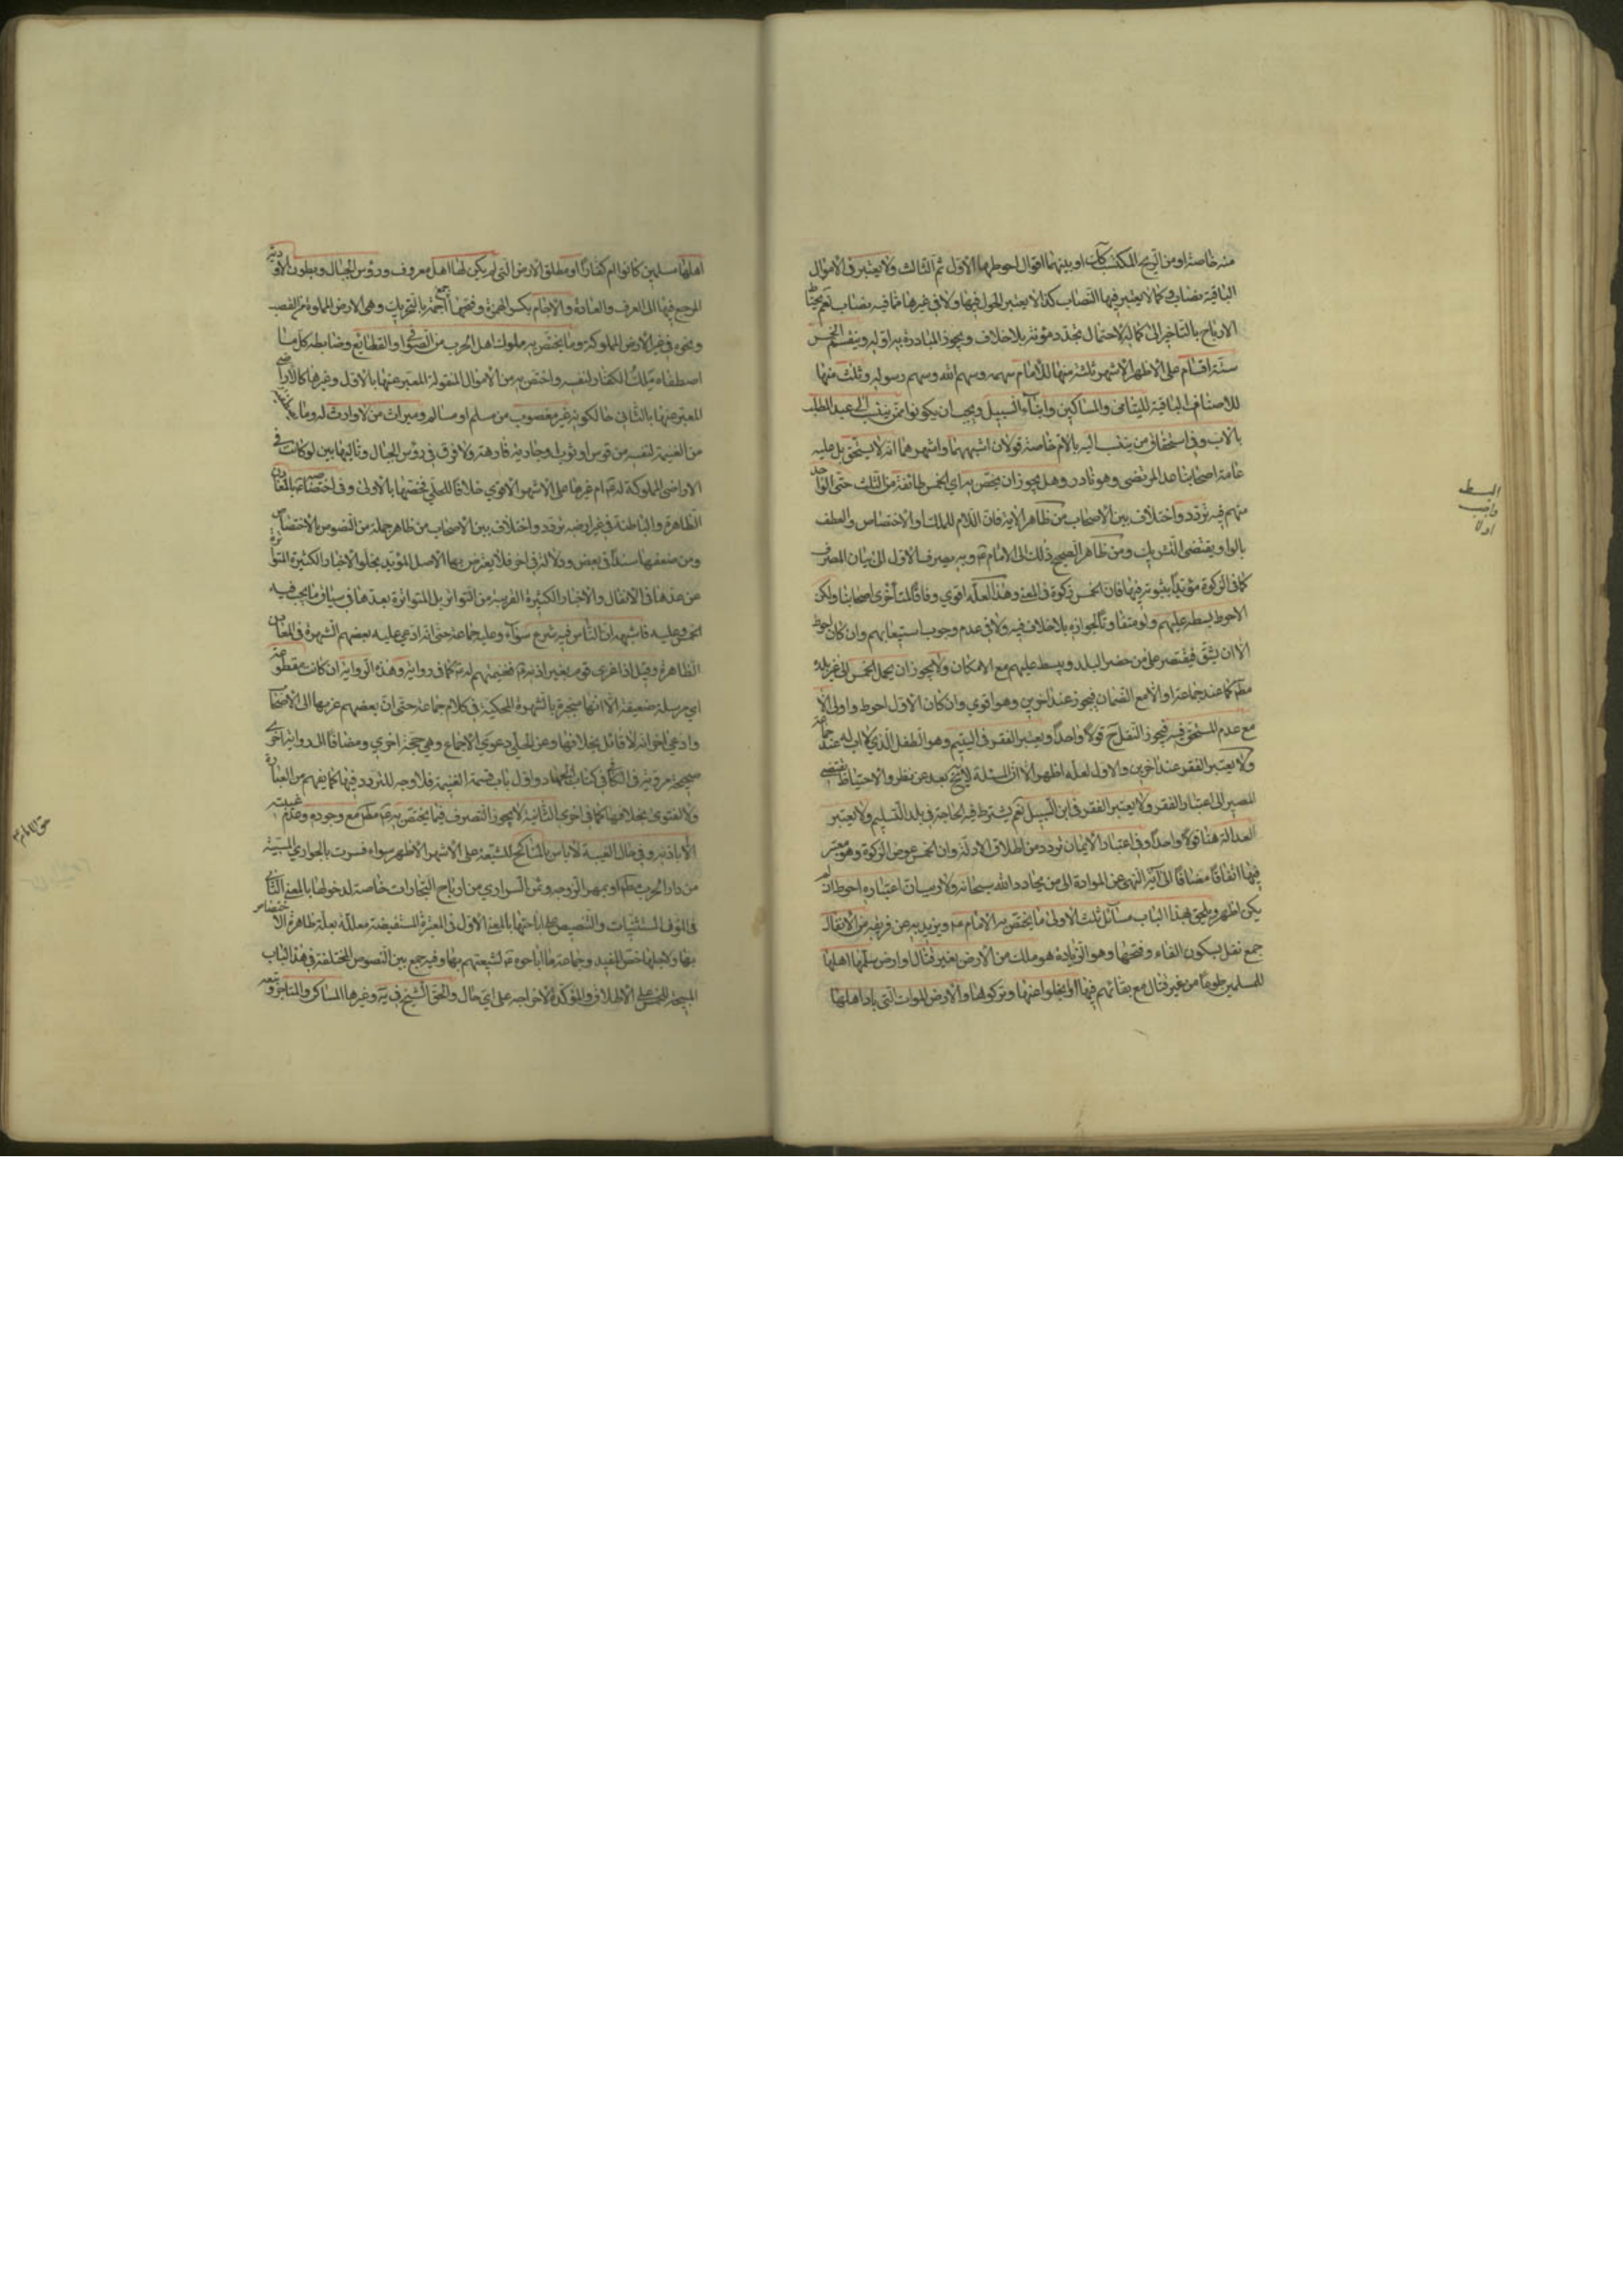 منه خاصة او من الربح المكتسب كك او بينهما اقوال احوطها الاول ثم الثالث ولا يعتبر فى الاموال
الباقية نصاب وكما لا يعتبر فيها النصاب كذا لا يعتبر الحول فيها ولا فى غيرها مما فيه نصاب نعم يحتاط
الارباح بالتاخير الى كماله لاحتمال تجدد مؤنة بلا خلاف ويجوز المبادرة به اوله ويقسم الخمس
ستة اقسام على الاظهر الاشهر ثلثة منها للامام سهمه وسهم الله وسهم رسوله وثلث منها
للاصناف الباقية لليتامى والمساكين وابناء السبيل ويجب ان يكونوا ممن ينتسب الى عبد المطلب
بالاب وفى استحقاق من ينتسب اليه بالام خاصة قولان اشبههما واشهرهما انه لا يستحق بل عليه
عامة اصحابنا عدا المرتضى وهو نادر وهل يجوز ان يخص به اى الخمس طائفة من الثلث حتى الواحد
منهم فيه تردد واختلاف بين الاصحاب من ظاهر الاية فان اللام للملك او الاختصاص والعطف
بالواو يقتضى التشريك ومن ظاهر الصحيح ذلك الى الامام ع وبه يصرف الاول الى بيان المصرف
كما فى الزكوة مؤيدا بثبوته فيها فان الخمس زكوة فى المعنى وهذا لعله اقوى وفاقا لمتأخرى اصحابنا ولكن
الاحوط بسطه عليهم ولو متفاوتا لجوازه بلا خلاف فيه ولا فى عدم وجوب استيعابهم وان كان احوط
الا ان يشق فيقتصر على من حضر البلد ويبسط عليهم مع الامكان ولا يجوز ان يحمل الخمس الى غير بلده
مطلقا عند جماعة او الا مع الضمان فيجوز عند اخرين وهو اقوى وان كان الاول احوط واولى الا
مع عدم المستحق فيه فيجوز النقل ح قولا واحدا ويعتبر الفقر فى اليتيم وهو الطفل الذى لا اب له عند جماعة
ولا يعتبر الفقر عند اخرين والاول لعله اظهر الا ان المسئلة للشيخ بعد عن نظر والاحتياط يقتضى
المصير الى اعتبار الفقر ولا يعتبر الفقر فى ابن السبيل نعم يشترط فيه الحاجة فى بلد التسليم ولا يعتبر
العدالة هنا قولا واحدا وفى اعتبار الايمان تردد من اطلاق الادلة وان الخمس عوض الزكوة وهو معتبر
فيها اتفاقا مضافا الى آية النهى عن الموادة الى من يحادد الله سبحانه ولا ريب ان اعتباره احوط ان لم
يكن اظهر ويلحق بهذا الباب مسائل ثلث الاولى ما يختص به الامام ع ويزيد به عن فريقه من الانفال
جمع نفل بسكون الفاء وفتحها وهو الزيادة هو ما ملك من الارض بغير قتال او ارض سلمها اهلها
للمسلمين طوعا من غير قتال مع بقائهم فيها او انجلوا عنها وتركوها والارض الموات التى باد اهلها
البسط
واجب
اولا
اهلها مسلمين كانوا ام كفارا او مطلق الارض التى لم يكن لها اهل معروف ورؤس الجبال وبطون الاودية
المرجع فيها الى العرف والعادة والاجام بكسر الهمزة وفتحها جمع اجمة بالتحريك وهى الارض المملوة من القصب
ونحوه فى غير الارض المملوكة وما يختص به ملوك اهل الحرب من الصوافى والقطايع وضابطه كل ما
اصطفاه ملك الكفار لنفسه واختص به من الاموال المنقولة المعبر عنها بالاول وغيرها كالاراضى
المعبر عنها بالثانى حالكونه غير مغصوب من مسلم او مسالم وميراث من لا وارث له وما
من الغنيمة لنفسه من قوس او ثوب او جارية فارهة ولا فرق فى رؤس الجبال وتاليها بين لو كانت فى
الاراضى المملوكة له ع ام غيرها على الاشهر الاقوى خلافا للحلى فخصها بالاولى وفى اختصاصه بالمعادن
الظاهرة والباطنة فى غير ارضه تردد واختلاف بين الاصحاب من ظاهر جملة من النصوص بالاختصاص
ومن ضعفها سندا فى بعض ودلالة فى اخر فلا يعترض بها الاصل المؤيد بخلو الاخبار الكثيرة المتواترة
عن عدها فى الانفال والاخبار الكثيرة القريبة من التواتر بل المتواترة بعدها فى سياق ما يجب فيه
الخمس وعليه فاشبهه ان الناس فيه شرع سواء وعليه جماعة حتى انه ادعى عليه بعضهم الشهرة فى المعادن
الظاهرة وقيل اذا غزى قوم بغير اذنه ع فغنيمتهم له ع كما فى رواية وهذه الرواية ان كانت مقطوعة
اى مرسلة ضعيفة الا انها منجبرة بالشهرة المحكية فى كلام جماعة حتى ان بعضهم عزيها الى الاصحاب
وادعى اخر انه لا قائل بخلافها وعن الحلى دعوى الاجماع وهى حجة اخرى ومضافا الى رواية اخرى
صحيحة مروية فى الكافى كتاب الجهاد واول باب قسمة الغنيمة فلا وجه للتردد فيها كما يفهم من العبارة
ولا لفتوى بخلافها كما فى اخرى الثانية لا يجوز التصرف فيما يختص به ع مطلقا مع وجوده وعدم غيبته
الا باذنه وفى حال الغيبة لا باس بالمناكح للشيعة على الاشهر الاظهر سواء فسرت بالجوارى المسبية
من دار الحرب مطلقا او بمهر الزوجة وثمن السرارى من ارباح التجارات خاصة لدخولها بالمعنى الثانى
فى المؤن المستثنيات والتنصيص على اباحتها بالمعنى الاول فى المعتبرة المستفيضة معللة بعلة ظاهرة الاختصاص
بها ولاجلها خص المفيد وجماعة ما اباحوه ع لشيعتهم بها وفيه جمع بين النصوص المختلفة فى هذا الباب
المبيحة للخمس على الاطلاق والمؤكدة لاخراجه على اى حال والحق الشيخ فى ية وغيرها المساكن والمتاجر وتبعه
حق الامام